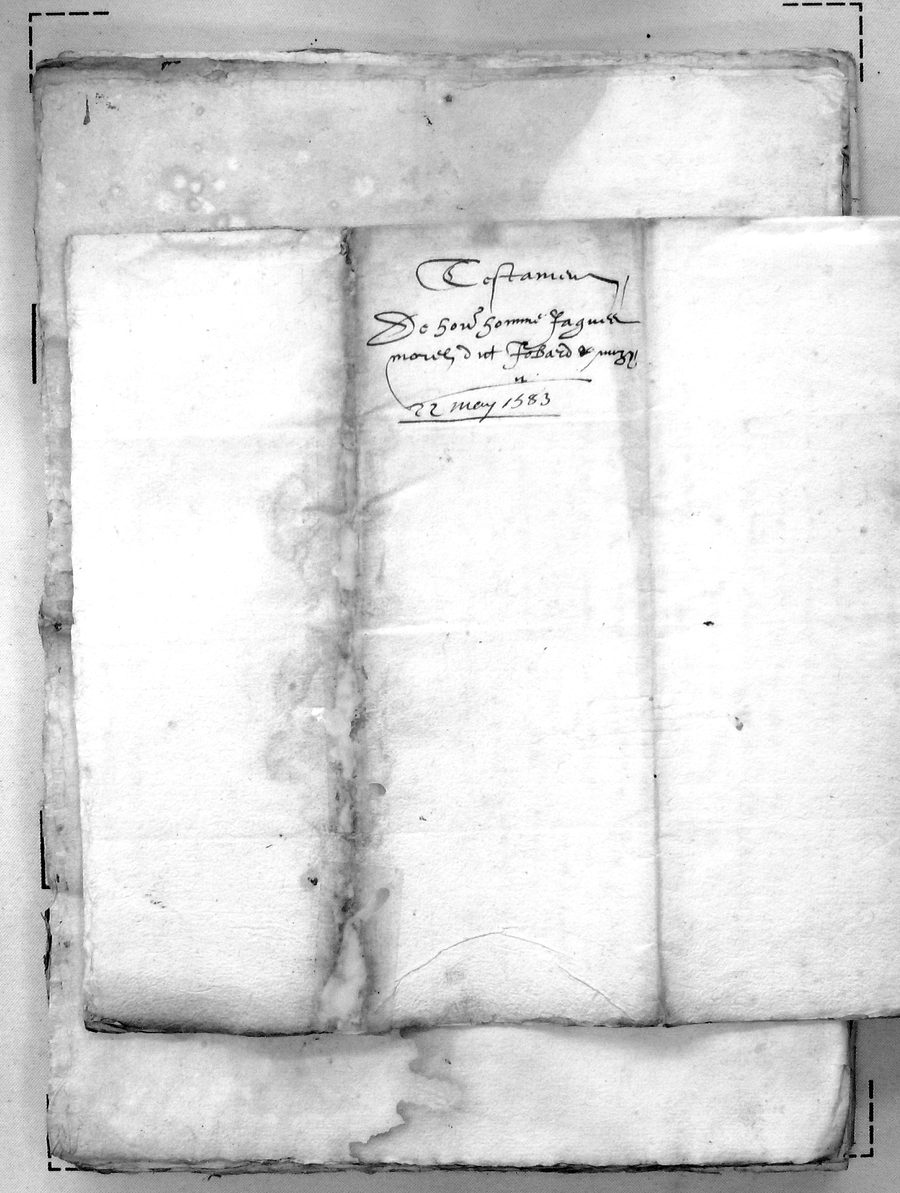 Testamen
De hon homme Jaques
morel dict Jobard
22 may 1583